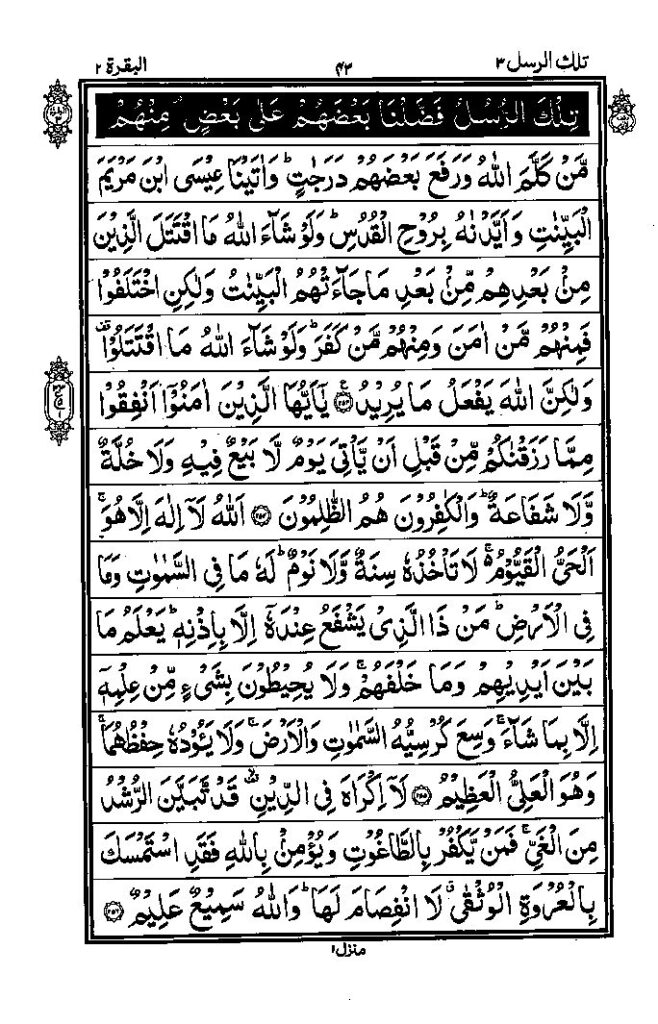 تلك الرسل ٣
۴۳
البقرة ٢
تِلْكَ الرُّسُلُ فَضَّلْنَا بَعْضَهُمْ عَلٰى بَعْضٍ ۘ مِنْهُمْ
مَّنْ كَلَّمَ اللّٰهُ وَرَفَعَ بَعْضَهُمْ دَرَجٰتٍ ؕ وَاٰتَيْنَا عِيْسَى ابْنَ مَرْيَمَ
الْبَيِّنٰتِ وَاَيَّدْنٰهُ بِرُوْحِ الْقُدُسِ ؕ وَلَوْ شَآءَ اللّٰهُ مَا اقْتَتَلَ الَّذِيْنَ
مِنْۢ بَعْدِهِمْ مِّنْۢ بَعْدِ مَا جَآءَتْهُمُ الْبَيِّنٰتُ وَلٰكِنِ اخْتَلَفُوْا
فَمِنْهُمْ مَّنْ اٰمَنَ وَمِنْهُمْ مَّنْ كَفَرَ ؕ وَلَوْ شَآءَ اللّٰهُ مَا اقْتَتَلُوْا ۟
وَلٰكِنَّ اللّٰهَ يَفْعَلُ مَا يُرِيْدُ ۧ﴿۲۵۳﴾ يٰۤاَيُّهَا الَّذِيْنَ اٰمَنُوْۤا اَنْفِقُوْا
مِمَّا رَزَقْنٰكُمْ مِّنْ قَبْلِ اَنْ يَّاْتِيَ يَوْمٌ لَّا بَيْعٌ فِيْهِ وَلَا خُلَّةٌ
وَّلَا شَفَاعَةٌ ؕ وَالْكٰفِرُوْنَ هُمُ الظّٰلِمُوْنَ ﴿۲۵۴﴾ اَللّٰهُ لَاۤ اِلٰهَ اِلَّا هُوَ ۚ
اَلْحَيُّ الْقَيُّوْمُ ۬ۚ لَا تَاْخُذُهٗ سِنَةٌ وَّلَا نَوْمٌ ؕ لَهٗ مَا فِى السَّمٰوٰتِ وَمَا
فِى الْاَرْضِ ؕ مَنْ ذَا الَّذِيْ يَشْفَعُ عِنْدَهٗۤ اِلَّا بِاِذْنِهٖ ؕ يَعْلَمُ مَا
بَيْنَ اَيْدِيْهِمْ وَمَا خَلْفَهُمْ ۚ وَلَا يُحِيْطُوْنَ بِشَيْءٍ مِّنْ عِلْمِهٖۤ
اِلَّا بِمَا شَآءَ ۚ وَسِعَ كُرْسِيُّهُ السَّمٰوٰتِ وَالْاَرْضَ ۚ وَلَا يَـُٔوْدُهٗ حِفْظُهُمَا ۚ
وَهُوَ الْعَلِيُّ الْعَظِيْمُ ﴿۲۵۵﴾ لَاۤ اِكْرَاهَ فِى الدِّيْنِ ۙ قَدْ تَّبَيَّنَ الرُّشْدُ
مِنَ الْغَيِّ ۚ فَمَنْ يَّكْفُرْ بِالطَّاغُوْتِ وَيُؤْمِنْۢ بِاللّٰهِ فَقَدِ اسْتَمْسَكَ
بِالْعُرْوَةِ الْوُثْقٰى ۗ لَا انْفِصَامَ لَهَا ؕ وَاللّٰهُ سَمِيْعٌ عَلِيْمٌ ﴿۲۵۶﴾
منزل۱